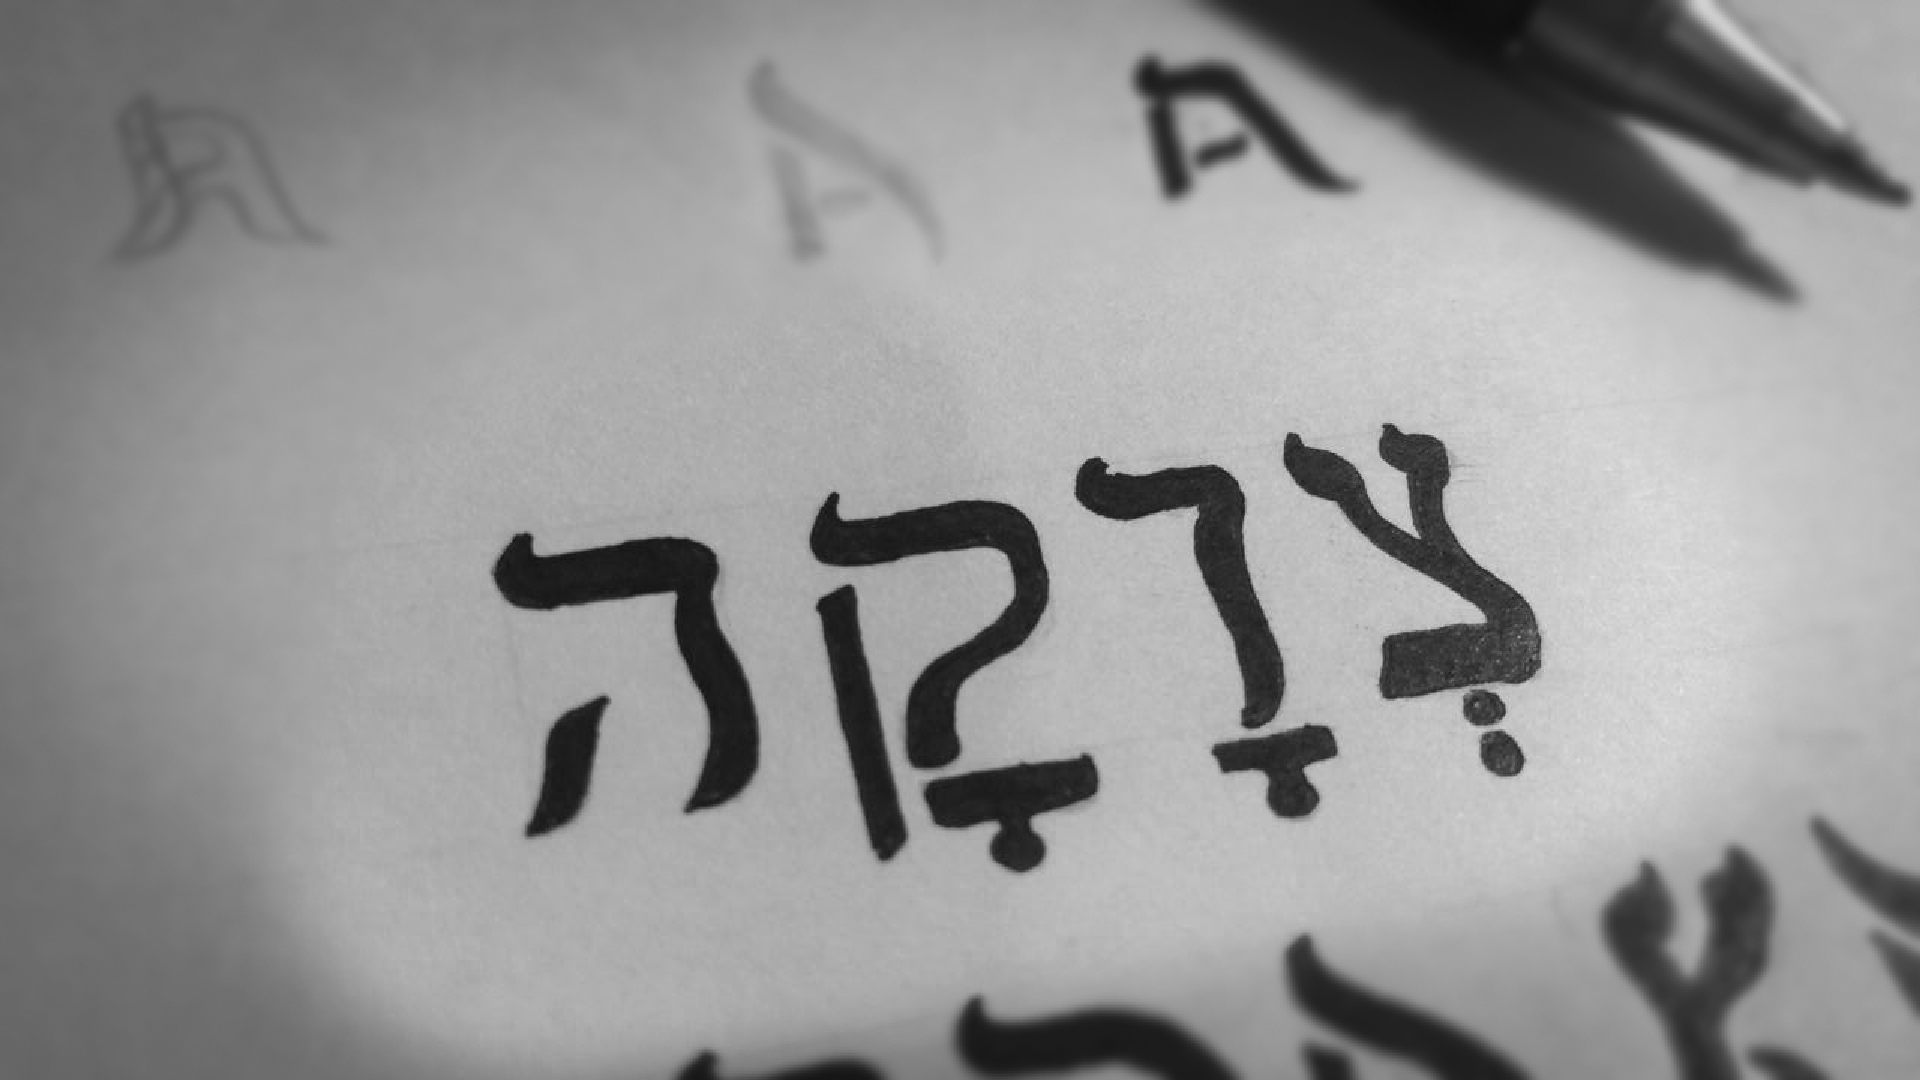 A A A
צְדָקָה